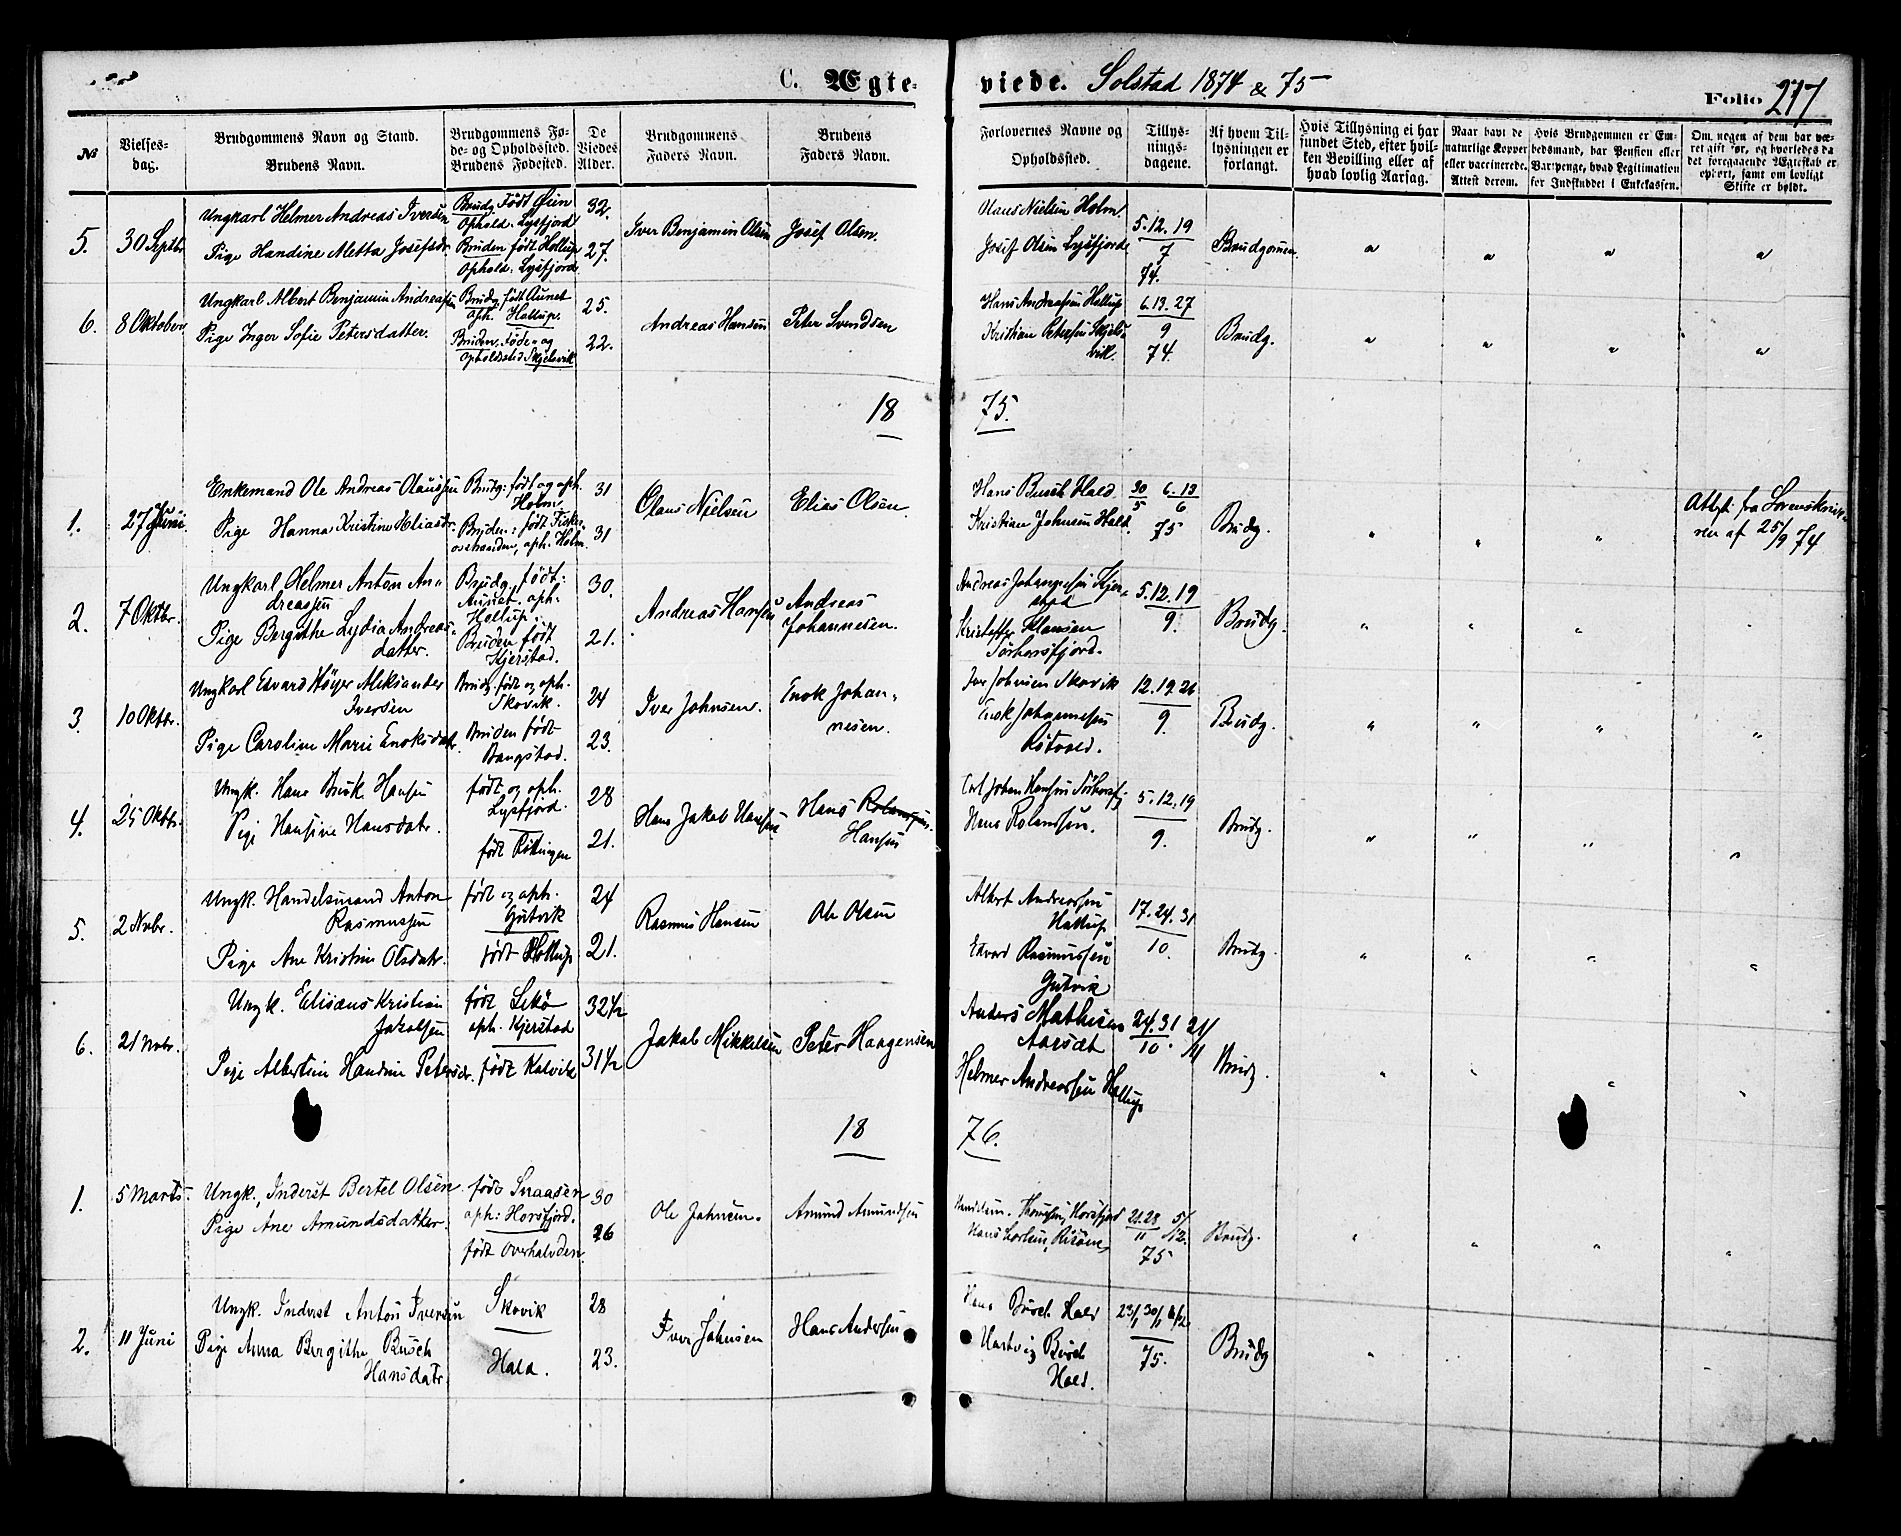 C. Ægte-
viede. Solstad 1874 & 75
Folio 217
№
Vielses-
dag.
Brudgommens Navn og Stand.
Brudens Navn.
Brudgommens Fø-
de- og Opholdssted.
Brudens Fødested.
De
Viedes
Alder.
Brudgommens
Faders Navn.
Brudens
Faders Navn.
Forlovernes Navne og
Opholdssted.
Tillys-
nings-
dagene.
Af hvem Til-
lysningen er
forlangt.
Hvis Tillysning ei har
fundet Sted, efter hvil-
ken Bevilling eller af
hvad lovlig Aarsag.
Naar havt de
naturlige Kopper
eller vaccinerede.
Attest derom.
Hvis Brudgommen er Em-
bedsmand, har Pension eller
Vartpenge, hvad Legitimation
for Indskuddet i Enkekassen.
Om nogen af dem har væ-
ret gift før, og hvorledes da
det foregaaende Ægteskab er
ophørt, samt om lovligt
Skifte er holdt.
5. 30 Septbr.
Ungkarl Helmer Andreas Iversen
Pige Handine Metta Josefsdr.
Brudg. Født Øien
Ophold: Lysfjord
Bruden født Hollup
Ophold: Lysfjord
32.
27.
Iver Benjamin Olsen
Josef Olsen.
Olaus Nielsen Holm.
Josef Olsen Lysfjord
5. 12. 19
7
74.
Brudgommen
6. 8 Oktober
Ungkarl Albert Benjamin Andreassen
Pige Inger Sofie Petersdatter.
Brudg. født Aunet
oph. Hallup.
Bruden, Føde- og
opholdssted Skjelsvik
25.
22.
Andreas Hansen
Peter Svendsen
Hans Andreassen Hallup
Kristian Petersen Skjels-
vik.
6. 13. 27
9
74.
Brudg.
18 75.
1. 27 Juni.
Enkemand Ole Andreas Olaussen
Pige Hanna Kristine Eliasdr.
Brudg: født og oph.
Holm.
Bruden: født Fisker-
osstranden, oph. Holm.
31
31
Olaus Nielsen
Elias Olsen
Hans Busch Hald
Kristian Johnsen Hald.
30 6. 13
5 6
75
Brudg.
Attest fra
ren af 25/9 74
2. 7 Oktbr.
Ungkarl Helmer Anton An-
dreassen
Pige Bergithe Lydia Andreas-
datter.
Brudg. født:
Aunet, oph.
Hollup.
Bruden født
Kjerstad.
30.
21.
Andreas Hansen
Andreas
Johannesen.
Andreas Johannesen Kjer-
stad
Kristoffer Klausen
Tørhorsfjord.
5. 12. 19
9.
Brudg.
3. 10 Oktbr.
Ungkarl Edvard Höyer Aleksander
Iversen
Pige Caroline Marie Enoksdatr.
Brudg. født og oph.
Skovik.
Bruden født
Bangstad.
24
23.
Iver Johnsen.
Enok Johan-
nesen.
Iver Johnsen Skovik
Enok Johannesen
12. 19. 26
9.
Brudg.
4. 25 Oktbr.
Ungk. Hans Busk Hansen
Pige Hansine Hansdatr.
født og oph.
Lysfjord.
født
28
21.
Hans Jakob Hansen
Hans Rolandsen.
Hansen
Carl Johan Hansen
Hans Rolandsen.
5. 12. 19
9.
Brudg.
5. 2 Nvbr.
Ungk. Handelsmand Anton
Rasmussen
Pige Ane Kristine Olsdatr.
født og oph.
Gutvik
født Hollup
24
21.
Rasmus Hansen
Ole Olsen
Albert Andreassen
Hallup
Edvard Rasmussen
Gutvik
17. 24. 31
10.
Brudg.
6. 21 Nvbr.
Ungk. Elisæus Kristian
Jakobsen
Pige Albertine Handine Petersdr.
født Lekø
oph. Kjerstad
født Kalvik
32½
31½
Jakob Mikkelsen
Peter Haagensen
Anders Mathisen
Aarsæt
Helmer Andreassen Hallup
24. 31 21/11
10.
Brudg.
18 76.
1. 5 Marts.
Ungk., Inderst Bertel Olsen
Pige Ane Amundsdatter.
født Snaasen
oph: Horsfjord.
født Overhalvden
30
26
Ole Johnsen.
Amund Amundsen
Thomesen, Horsfjord
Hans Carlsen,
21. 28 5/12.
11
75
Brudg.
2. 11 Juni
Ungk. Inderst Anton Iversen
Pige Anna Bergithe Busch
Hansdatr.
Skovik
Hald.
28
23.
Iver Johnsen
Hans Andersen
Hans Busch Hald
Hartvig Busch
Hald.
23/1 30/1 6/2
75.
Brudg